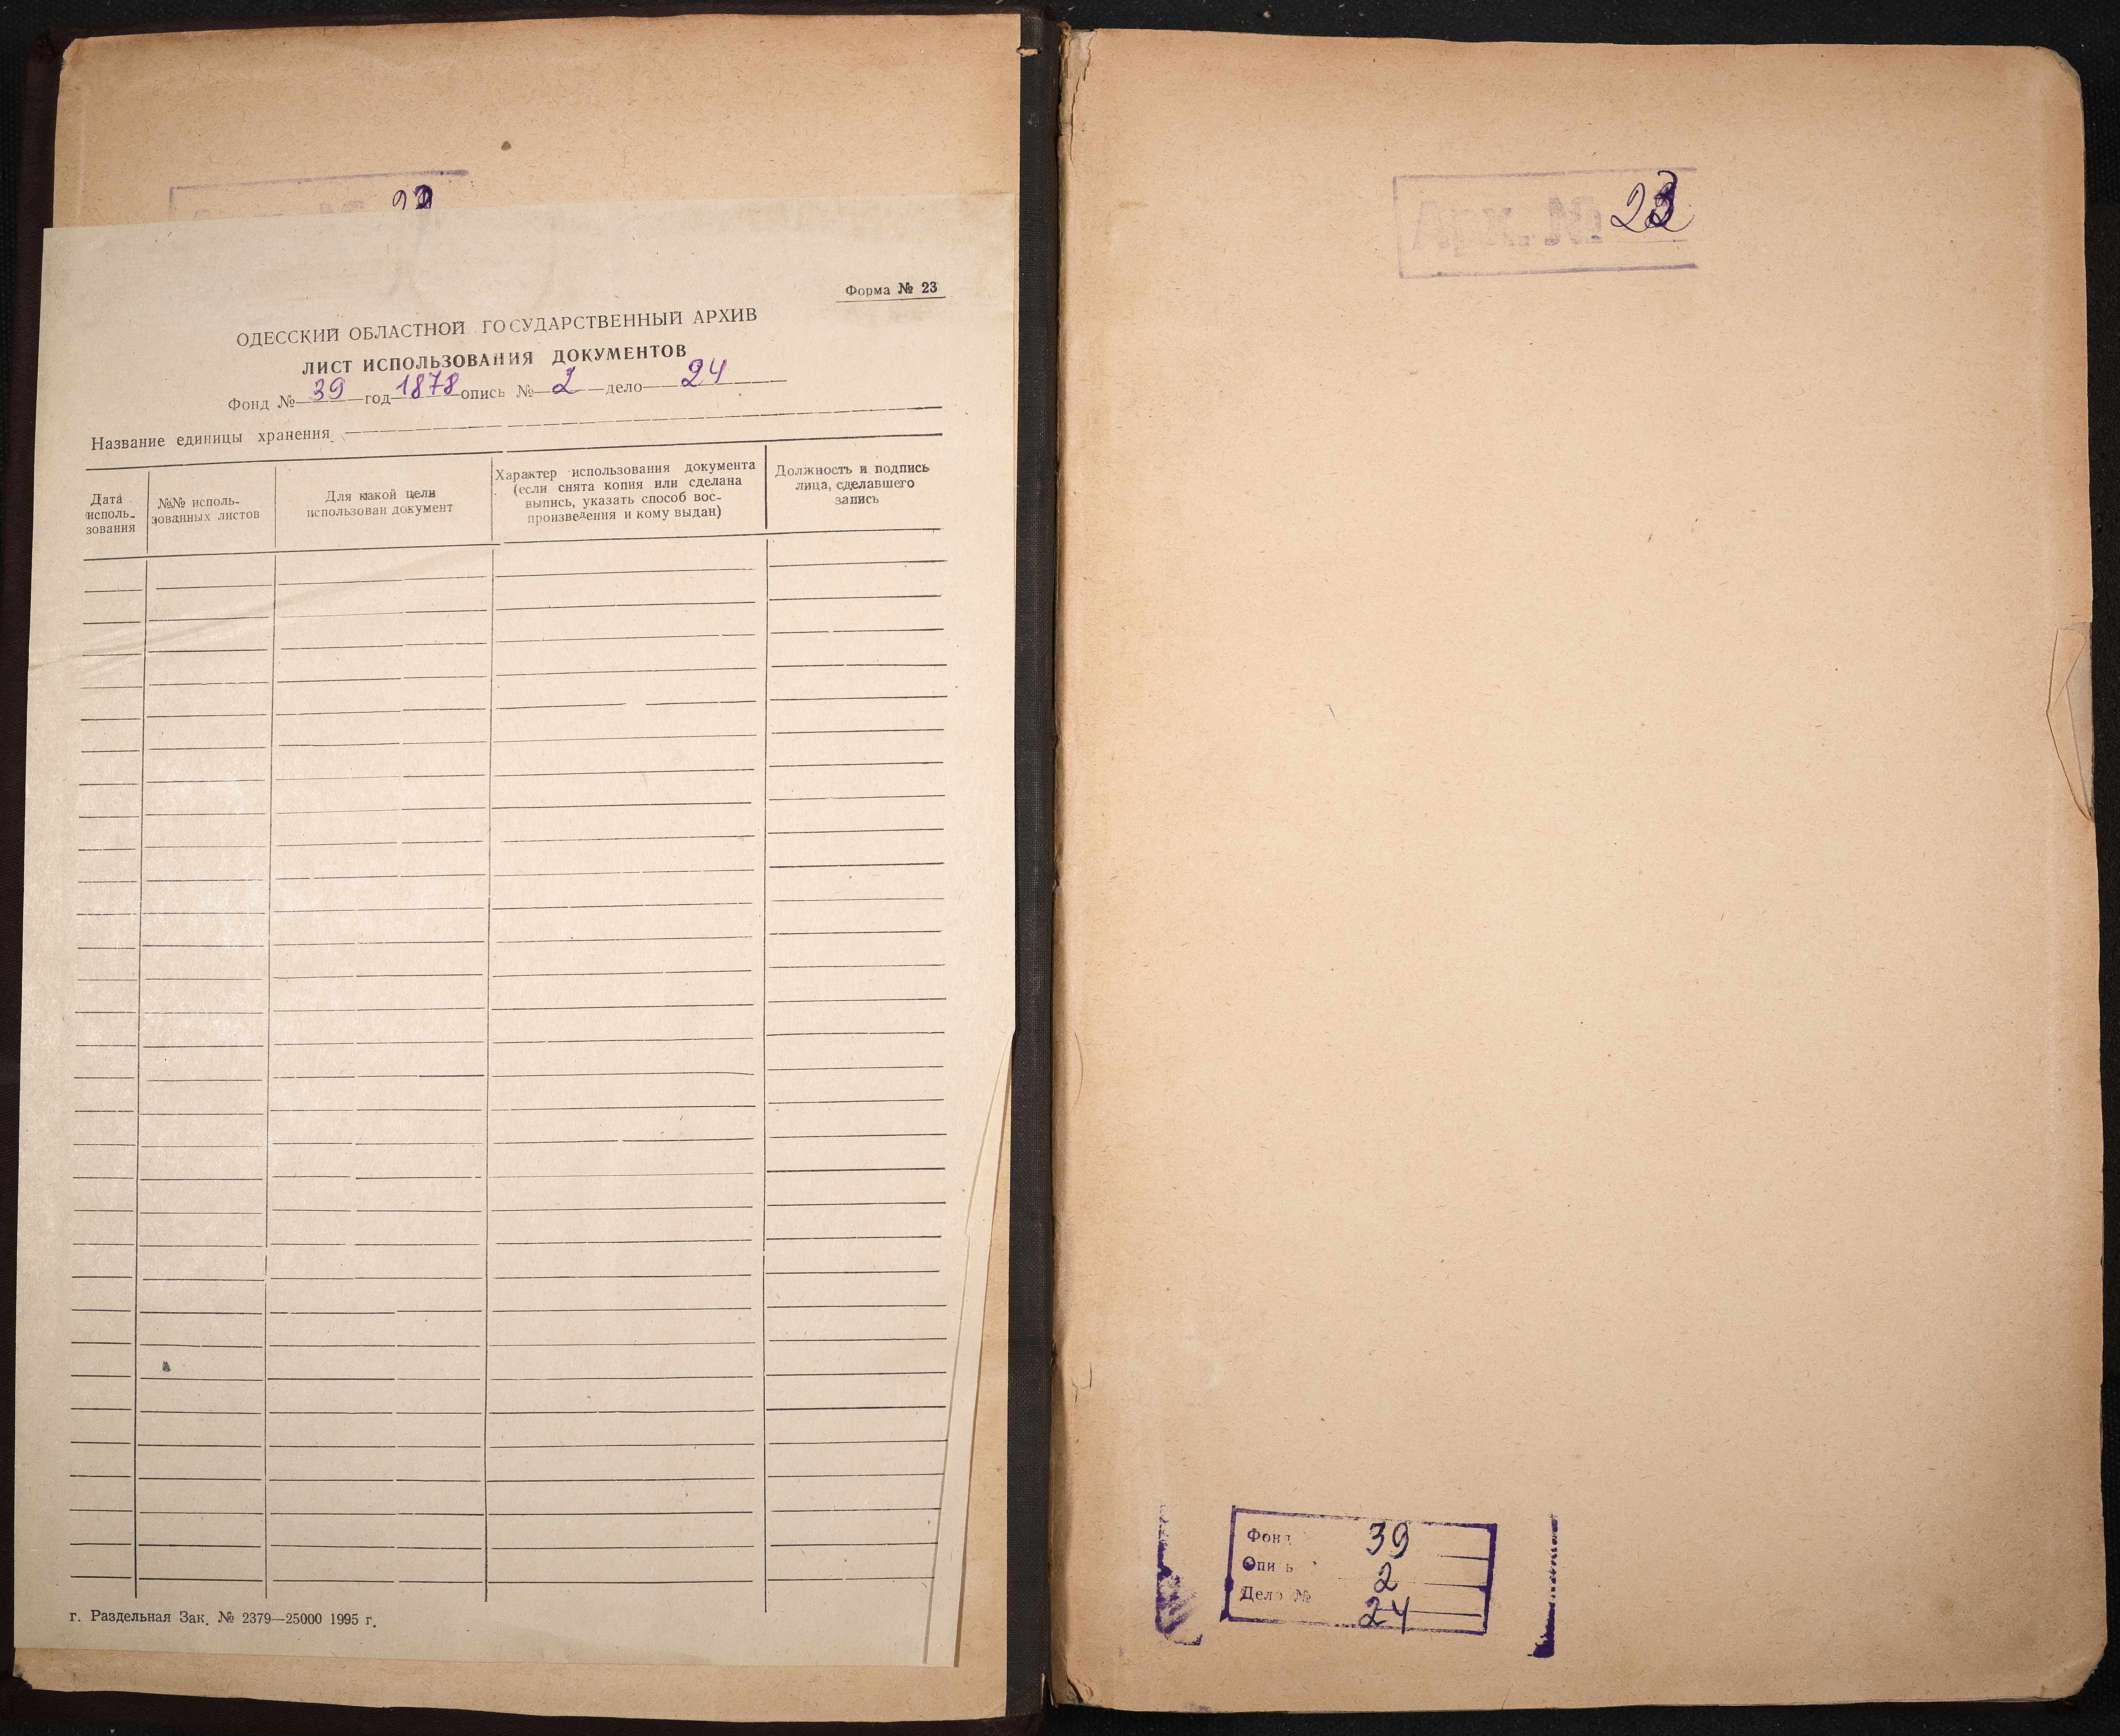 Форма № 23
ОДЕССКИЙ ОБЛАСТНОЙ ГОСУДАРСТВЕННЫЙ АРХИВ
ЛИСТ ИСПОЛЬЗОВАНИЯ ДОКУМЕНТОВ
Фонд № 39 год 1878 опись № 2 дело 24
Название единицы хранения
Дата
исполь-
зования
№№ исполь-
зованных листов
Для какой цели
использован документ
Характер использования документа
(если снята копия или сделана
выпись, указать способ вос-
произведения и кому выдан)
Должность и подпись
лица, сделавшего
запись
г. Раздельная Зак. № 2379—25000 1995 г.
Арх. №
Фонд 39
Опись 2
Дело № 24